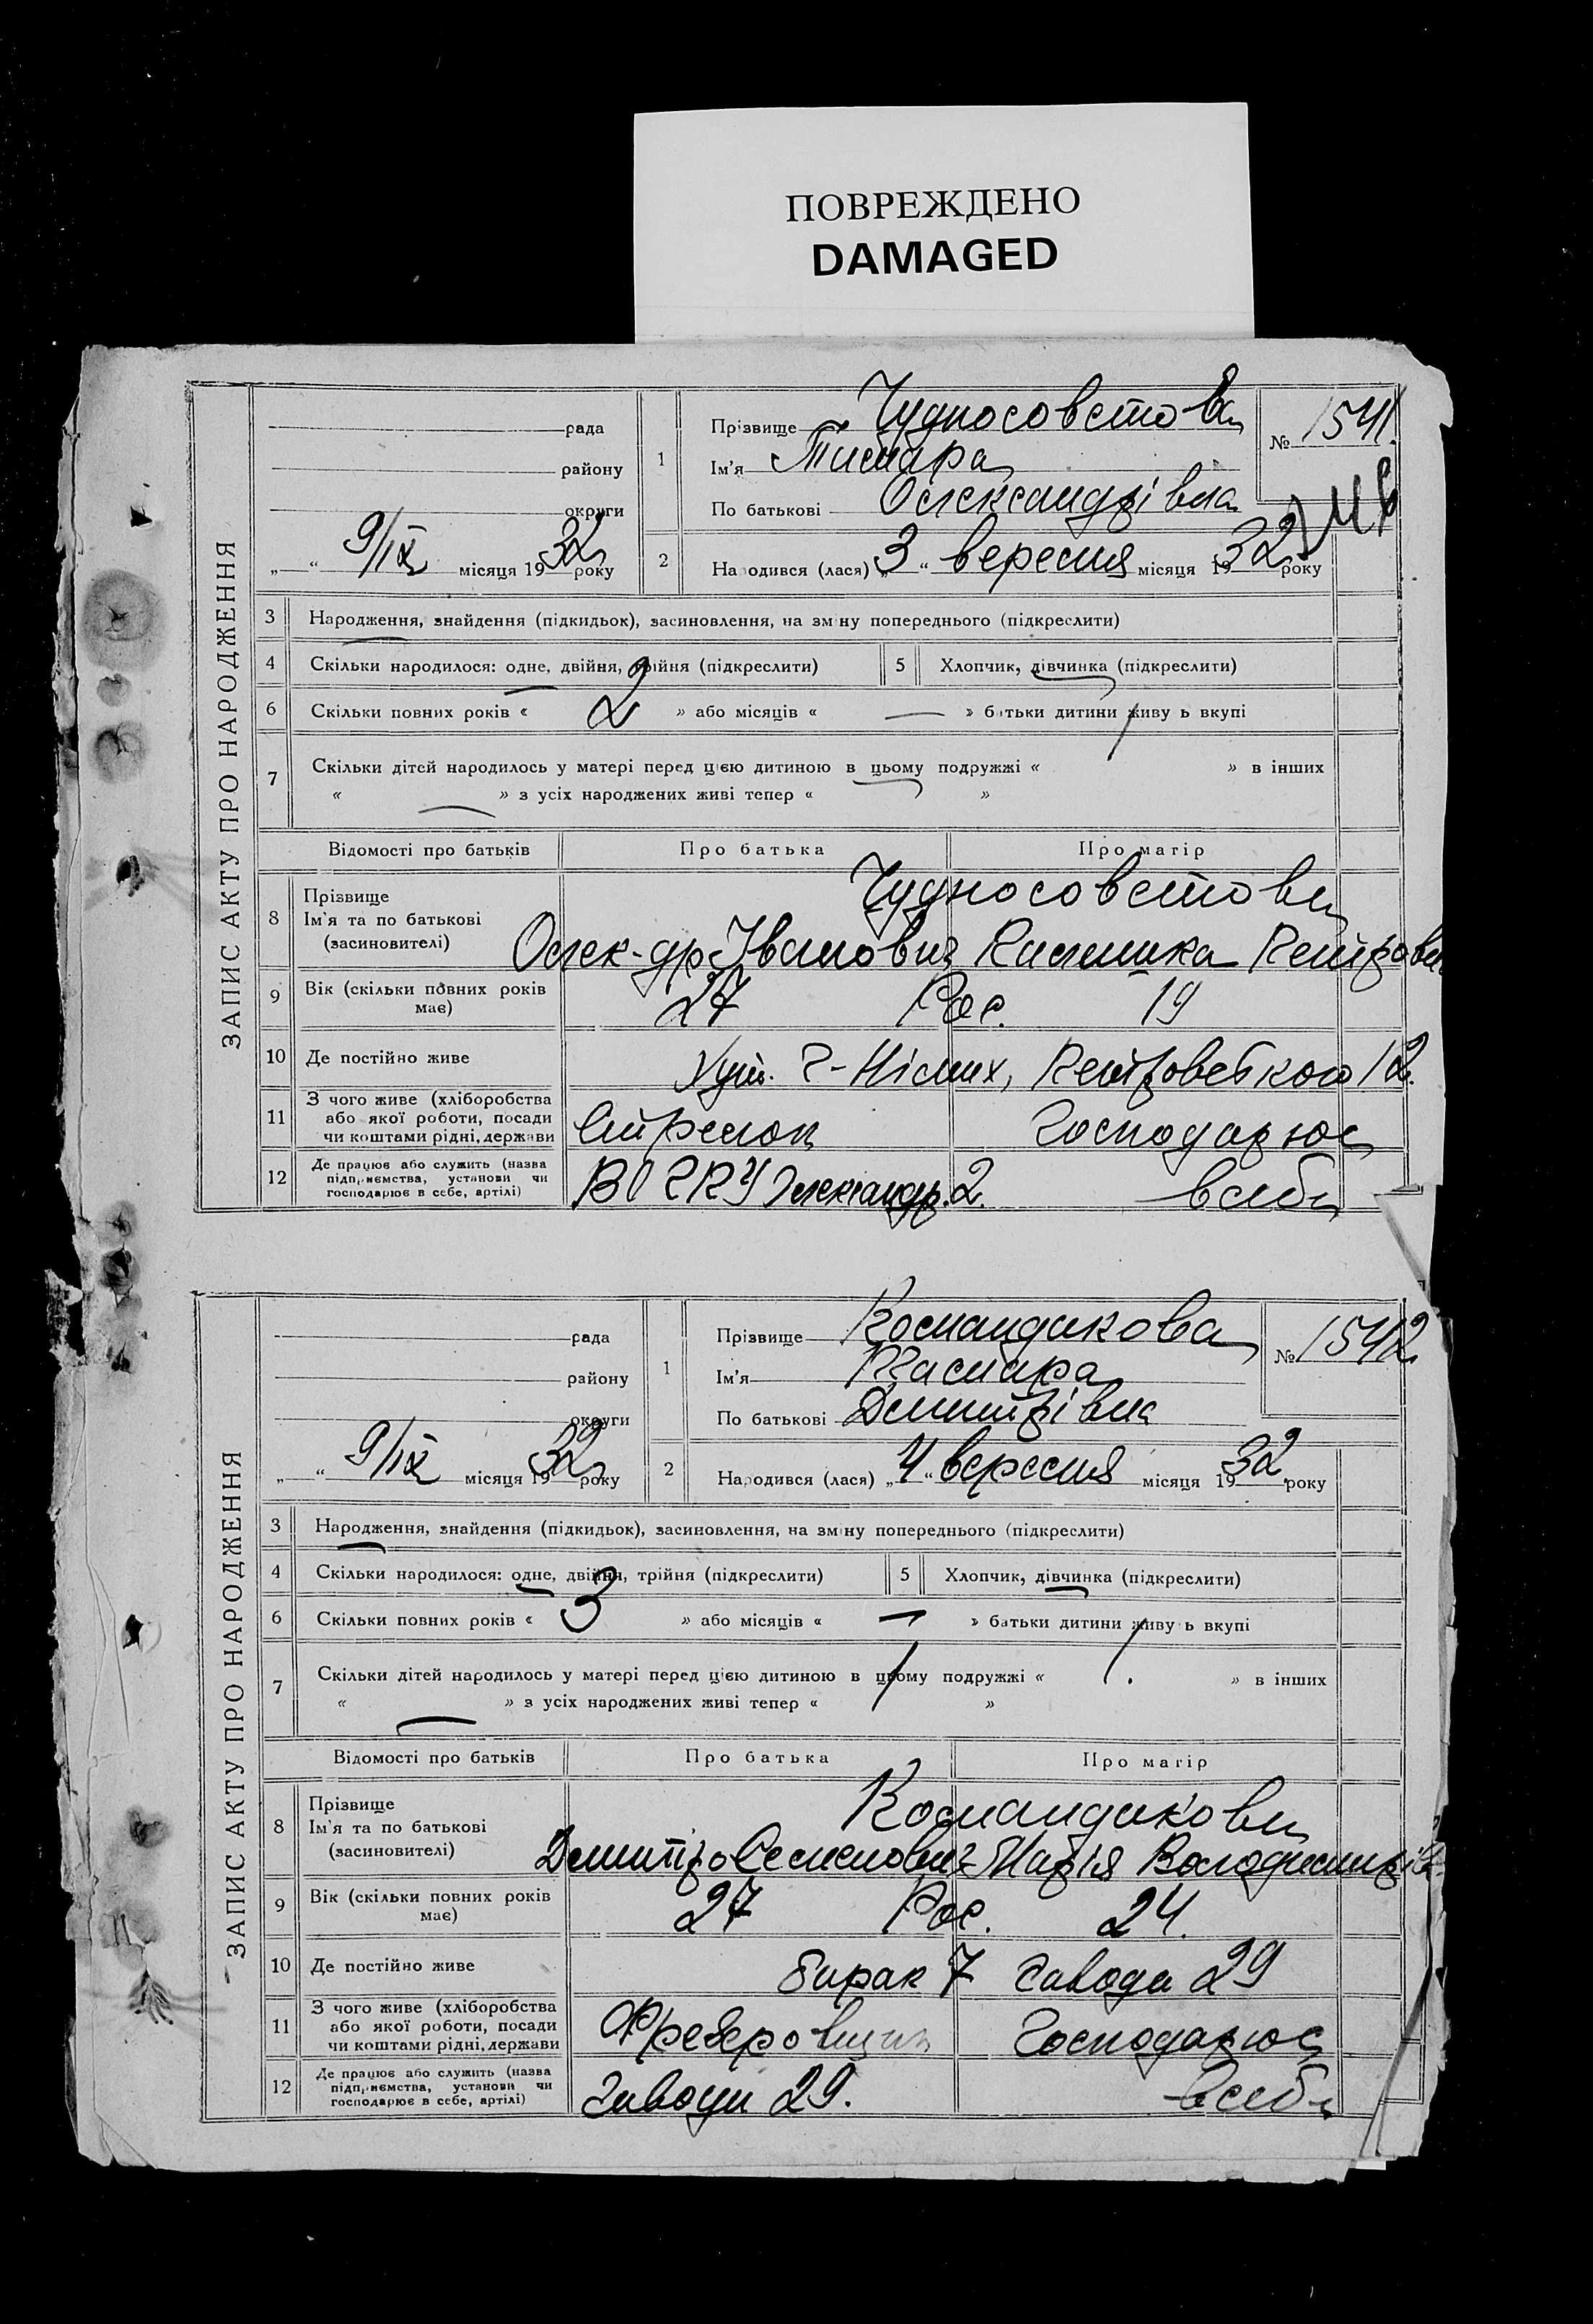 ПОВРЕЖДЕНО
DAMAGED
ЗАПИС АКТУ ПРО НАРОДЖЕННЯ
рада
району
округи
„ “ 9/IX місяця 1932 року
1
Прізвище Чудносовєтова
Ім'я Тамара
По батькові Олександрівна
№ 1541.
2
Народився (лася) „3“ вересня місяця 1932 року
3 Народження, знайдення (підкидьок), засиновлення, на зміну попереднього (підкреслити)
4 Скільки народилося: одне, двійня, трійня (підкреслити)
5 Хлопчик, дівчинка (підкреслити)
6 Скільки повних років « 2 » або місяців « — » батьки дитини живуть вкупі
7 Скільки дітей народилось у матері перед цією дитиною в цьому подружжі « » в інших
« — » з усіх народжених живі тепер « »
Відомості про батьків Про батька Про матір
8 Прізвище
Ім'я та по батькові
(засиновителі)
Чудносовєтови
Олек-др Іванович
9 Вік (скільки повних років
має)
27 Рос. 19
10 Де постійно живе
12.
11 З чого живе (хліборобства
або якої роботи, посади
чи коштами рідні, держави
Стрелок Господарює
12 Де працює або служить (назва
підприємства, установи чи
господарює в себе, артілі)
2. в себе
ЗАПИС АКТУ ПРО НАРОДЖЕННЯ
рада
району
округи
„ “ 9/IX місяця 1932 року
1
Прізвище Командакова
Ім'я Тамара
По батькові Дмитрівна
№ 1542
2
Народився (лася) „4“ вересня місяця 1932 року
3 Народження, знайдення (підкидьок), засиновлення, на зміну попереднього (підкреслити)
4 Скільки народилося: одне, двійня, трійня (підкреслити)
5 Хлопчик, дівчинка (підкреслити)
6 Скільки повних років « 3 » або місяців « — » батьки дитини живуть вкупі
7 Скільки дітей народилось у матері перед цією дитиною в цьому подружжі « » в інших
« — » з усіх народжених живі тепер « »
Відомості про батьків Про батька Про матір
8 Прізвище
Ім'я та по батькові
(засиновителі)
Командакови
Дмитро Семенович Марія Володимирів
9 Вік (скільки повних років
має)
27 Рос. 24.
10 Де постійно живе
барак 7 завода 29
11 З чого живе (хліборобства
або якої роботи, посади
чи коштами рідні, держави
Фрезеровщик Господарює
12 Де працює або служить (назва
підприємства, установи чи
господарює в себе, артілі)
Заводи 29. в себе